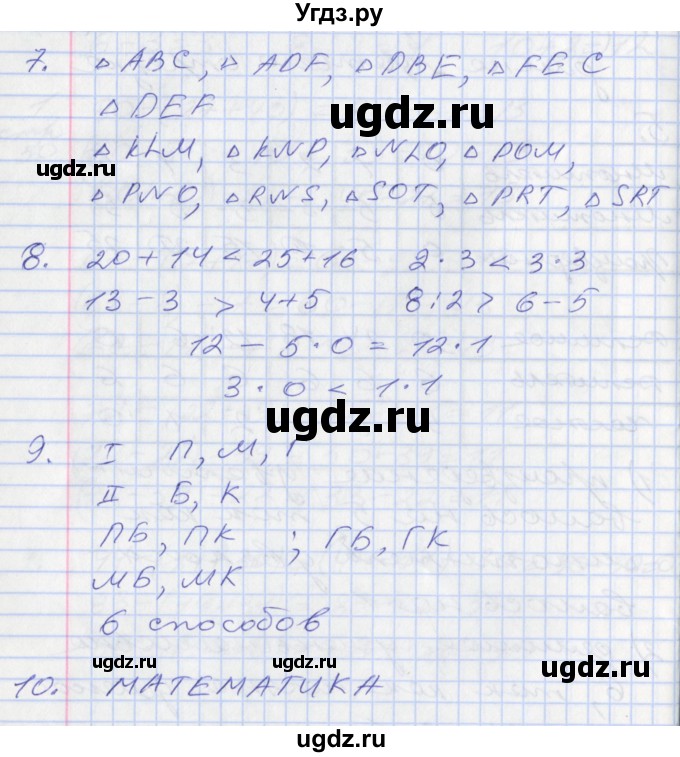 Угдз.ру
7. △ ABC, △ ADF, △ DBE, △ FEC
△ DEF
ugdz.ru
ugdz.ru
△ KLM, △ KNP, △ NLO, △ POM,
△ PNO, △ RNS, △ SOT, △ PRT, △ SRT
8. 20 + 14 < 25 + 16 2 · 3 < 3 · 3
13 - 3 > 4 + 5 8 : 2 > 6 - 5
ugdz.ru
12 - 5 · 0 = 12 · 1
3 · 0 < 1 · 1
ugdz.ru
9. I П, М, Г
II Б, К
ugdz.ru
ПБ, ПК ; ГБ, ГК
МБ, МК
6 способов
ugdz.ru
ugdz.ru
10. МАТЕМАТИКА
ugdz.ru